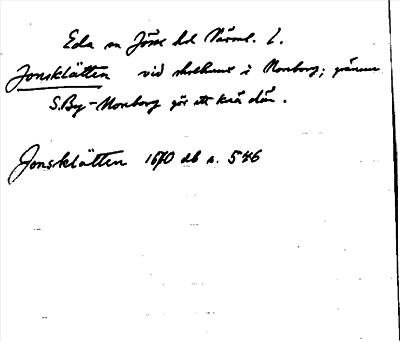 Eda sn Jösse hd Värml. l.
Jonsklätten vid skolhuset i Norsborg; gränsen
S.By-Morsborg gör ett knä där.
Jonsklätten 1670 db a. 546